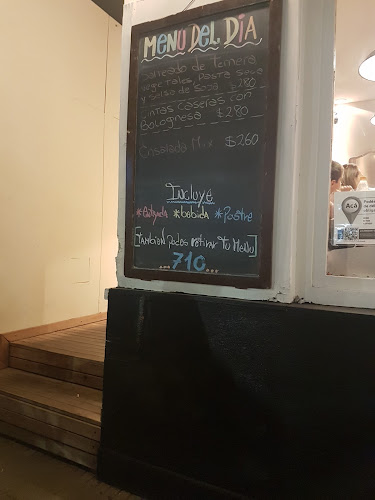 MENU DEL DIA
Salteado de ternera
vegetales, Pasta soba
y salsa de soja $280
Cintas Caseras con
Bolognesa $280
Ensalada Mix $260
Incluye
*Entrada *bebida *Postre
[También podes retirar Tu Menu]
...710...
Acá